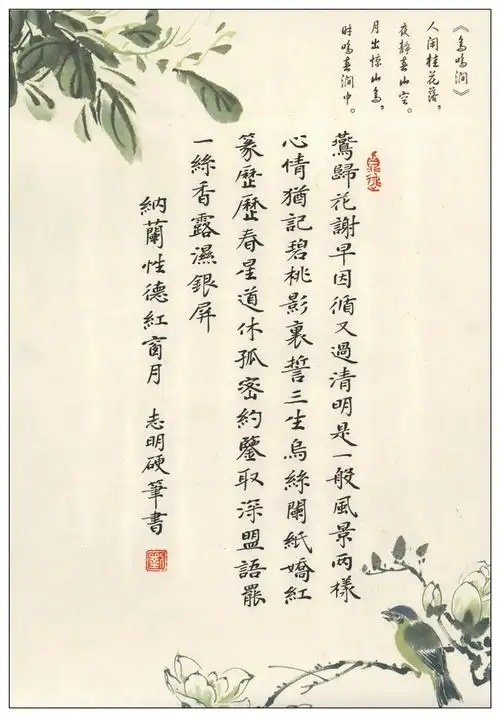 《鸟鸣涧》
人闲桂花落，
夜静春山空。
月出惊山鸟，
时鸣春涧中。
鷰歸花謝早因循又過清明是一般風景兩樣
心情猶記碧桃影裏誓三生烏絲闌紙嬌紅
篆歷歷春星道休孤密約鑒取深盟語罷
一絲香露濕銀屏
納蘭性德紅窗月 志明硬筆書